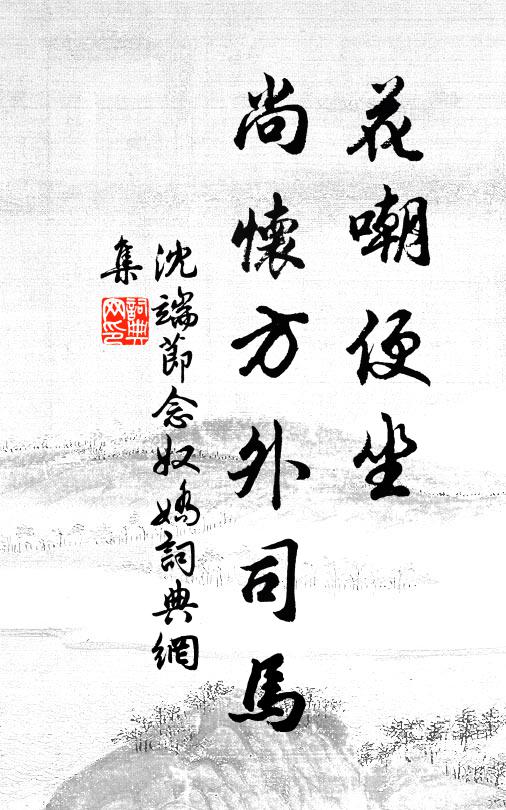 花嘲便坐
尚懷方外司馬
沈端節念奴嬌詞典網
集
詞典网印